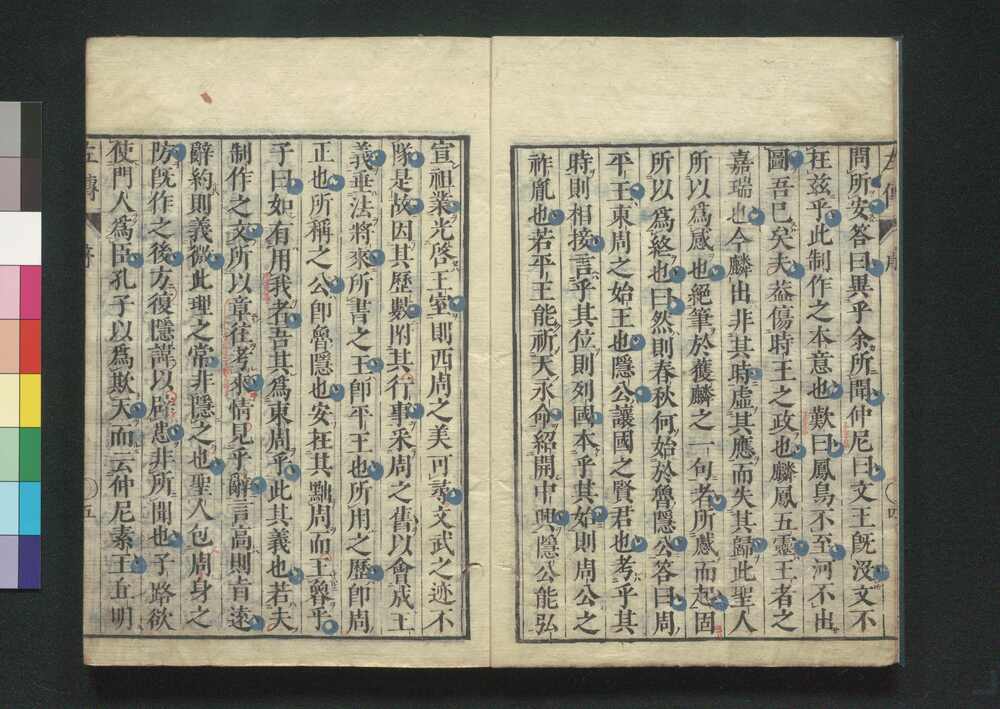 問所安答曰異乎余所聞仲尼曰文王既没文不
在茲乎此制作之本意也歎曰鳳鳥不至河不出
圖吾已矣夫蓋傷時王之政也麟鳳五靈王者之
嘉瑞也今麟出非其時虚其應而失其歸此聖人
所以爲感也絶筆於獲麟之一句者所感而起固
所以爲終也曰然則春秋何始於魯隱公答曰周
平王東周之始王也隱公讓國之賢君也考乎其
時則相接言乎其位則列國本乎其始則周公之
祚胤也若平王能祈天永命紹開中興隱公能弘
宣祖業光啓王室則西周之美可尋文武之迹不
隊是故因其歷數附其行事采周之舊以會成王
義垂法將來所書之王卽平王也所用之歷卽周
正也所稱之公卽魯隱也安在其黜周而王魯乎
子曰如有用我者吾其爲東周乎此其義也若夫
制作之文所以章往考來情見乎辭言高則旨遠
辭約則義微此理之常非隱之也聖人包周身之
防既作之後方復隱諱以辟患非所聞也子路欲
使門人爲臣孔子以爲欺天而云仲尼素王丘明
左傳
序
五